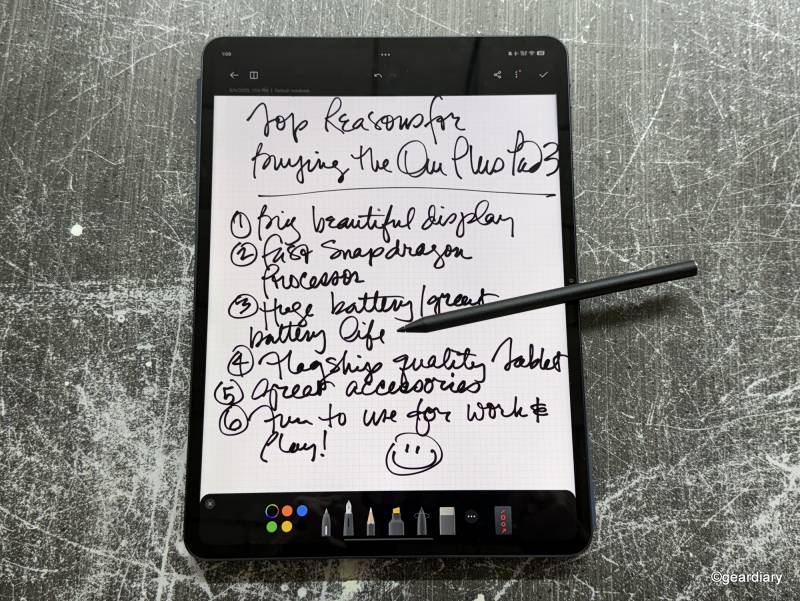 1:09
Top Reasons for
Buying the One Plus Pad 3
① Big beautiful display
② Fast Snapdragon
Processor
③ Huge battery/great
battery life
④ Flagship quality tablet
⑤ Great accessories
⑥ Fun to use for work &
Play!
©geardiary